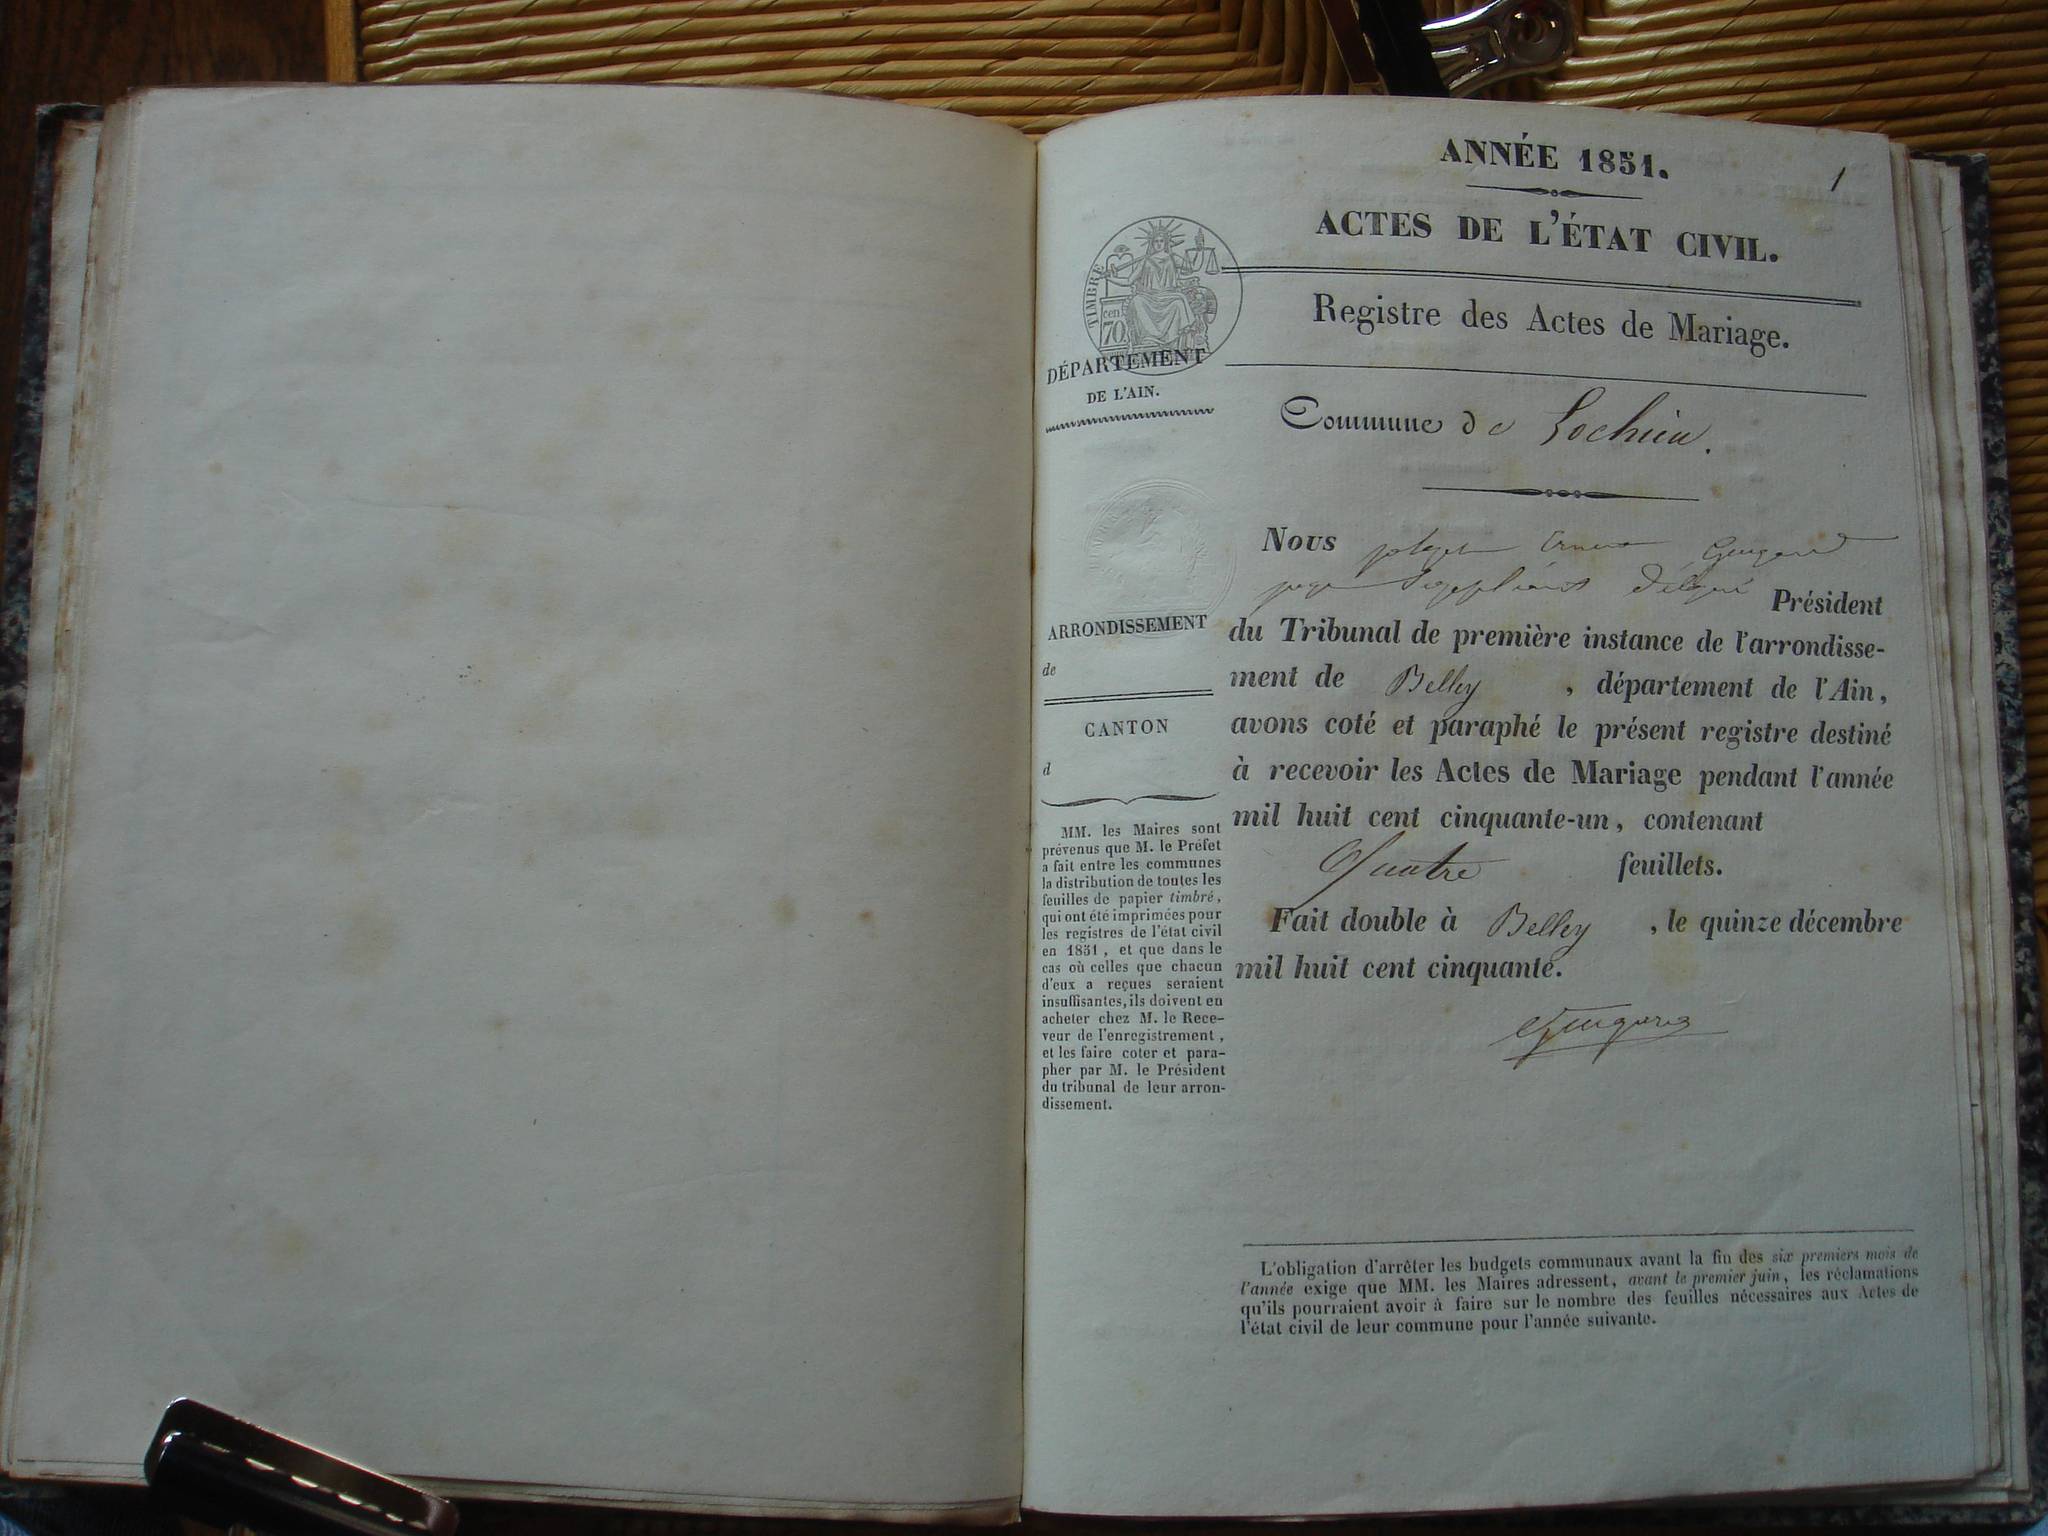 ANNÉE 1851.
1
ACTES DE L'ÉTAT CIVIL.
Registre des Actes de Mariage.
TIMBRE
cent
70
DÉPARTEMENT
DE L'AIN.
Commune de Lochieu.
Nous
délégué Président
du Tribunal de première instance de l'arrondisse-
ment de Belley, département de l'Ain,
avons coté et paraphé le présent registre destiné
à recevoir les Actes de Mariage pendant l'année
mil huit cent cinquante-un, contenant
Quatre feuillets.
Fait double à Belley, le quinze décembre
mil huit cent cinquante.
ARRONDISSEMENT
de
CANTON
d
MM. les Maires sont
prévenus que M. le Préfet
a fait entre les communes
la distribution de toutes les
feuilles de papier timbré,
qui ont été imprimées pour
les registres de l'état civil
en 1851, et que dans le
cas où celles que chacun
d'eux a reçues seraient
insuffisantes, ils doivent en
acheter chez M. le Rece-
veur de l'enregistrement,
et les faire coter et para-
pher par M. le Président
du tribunal de leur arron-
dissement.
L'obligation d'arrêter les budgets communaux avant la fin des six premiers mois de
l'année exige que MM. les Maires adressent, avant le premier juin, les réclamations
qu'ils pourraient avoir à faire sur le nombre des feuilles nécessaires aux Actes de
l'état civil de leur commune pour l'année suivante.